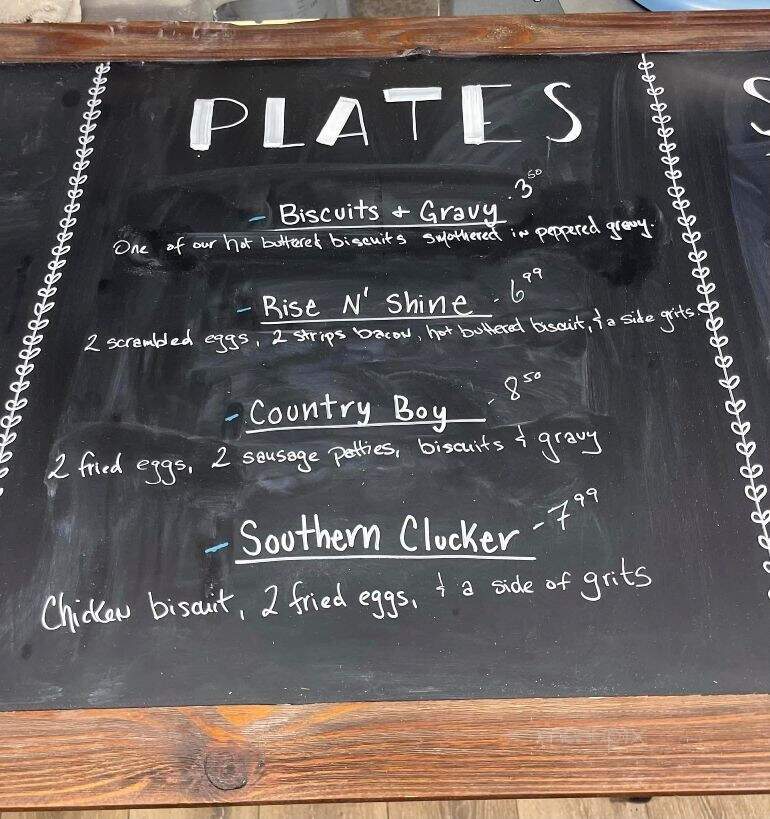 PLATES
- Biscuits + Gravy - 3 50
One of our hot buttered biscuits smothered in peppered gravy.
- Rise N' Shine - 6 99
2 scrambled eggs, 2 strips bacon, hot buttered biscuit, + a side grits
- Country Boy - 8 50
2 fried eggs, 2 sausage patties, biscuits + gravy
- Southern Clucker - 7 99
Chicken biscuit, 2 fried eggs, + a side of grits